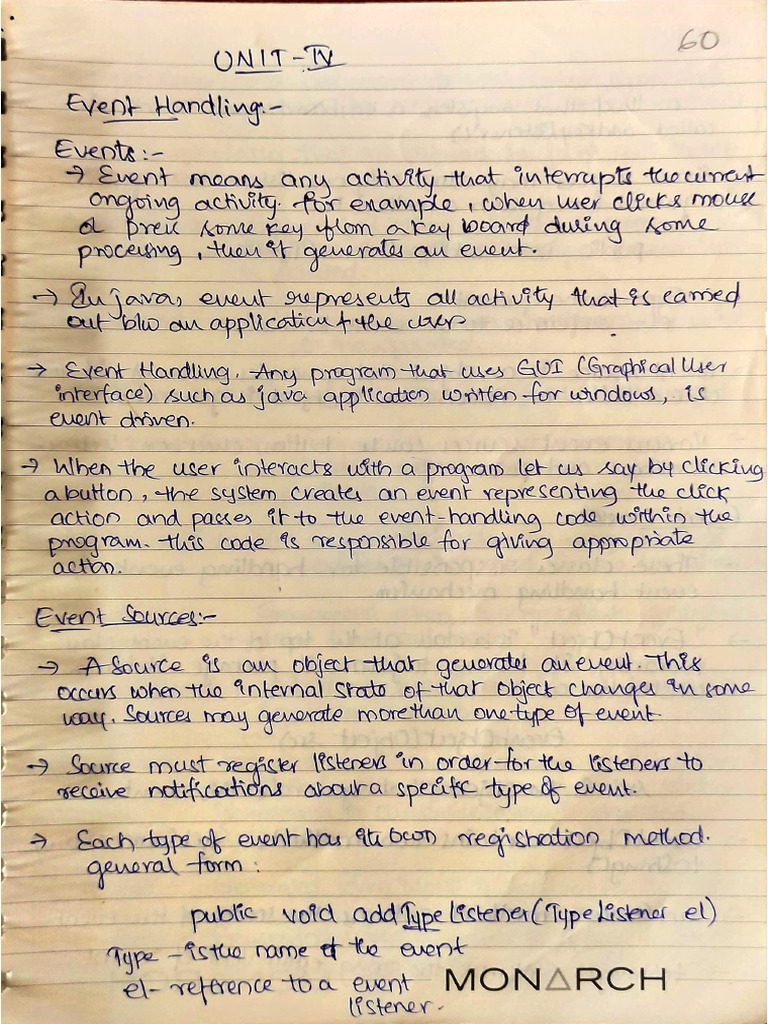 60
UNIT-IV
Event Handling:-
Events:-
→ Event means any activity that interrupts the current
ongoing activity. for example, when user clicks mouse
or press some key from a key board during some
processing, then it generates an event.
→ In java, event represents all activity that is carried
out b/w an application & the user
→ Event Handling. Any program that uses GUI (Graphical User
interface) such as java application written for windows, is
event driven.
→ When the user interacts with a program let us say by clicking
a button, the system creates an event representing the click
action and passes it to the event-handling code within the
program. this code is responsible for giving appropriate
action.
Event Sources:-
→ A Source is an object that generates an event. This
occurs when the internal state of that object changes in some
way. Sources may generate more than one type of event.
→ Source must register listeners in order for the listeners to
receive notifications about a specific type of event.
→ Each type of event has its own registration method.
general form:
public void addTypeListener(TypeListener el)
Type - is the name of the event
el - reference to a event
listener.
MONARCH